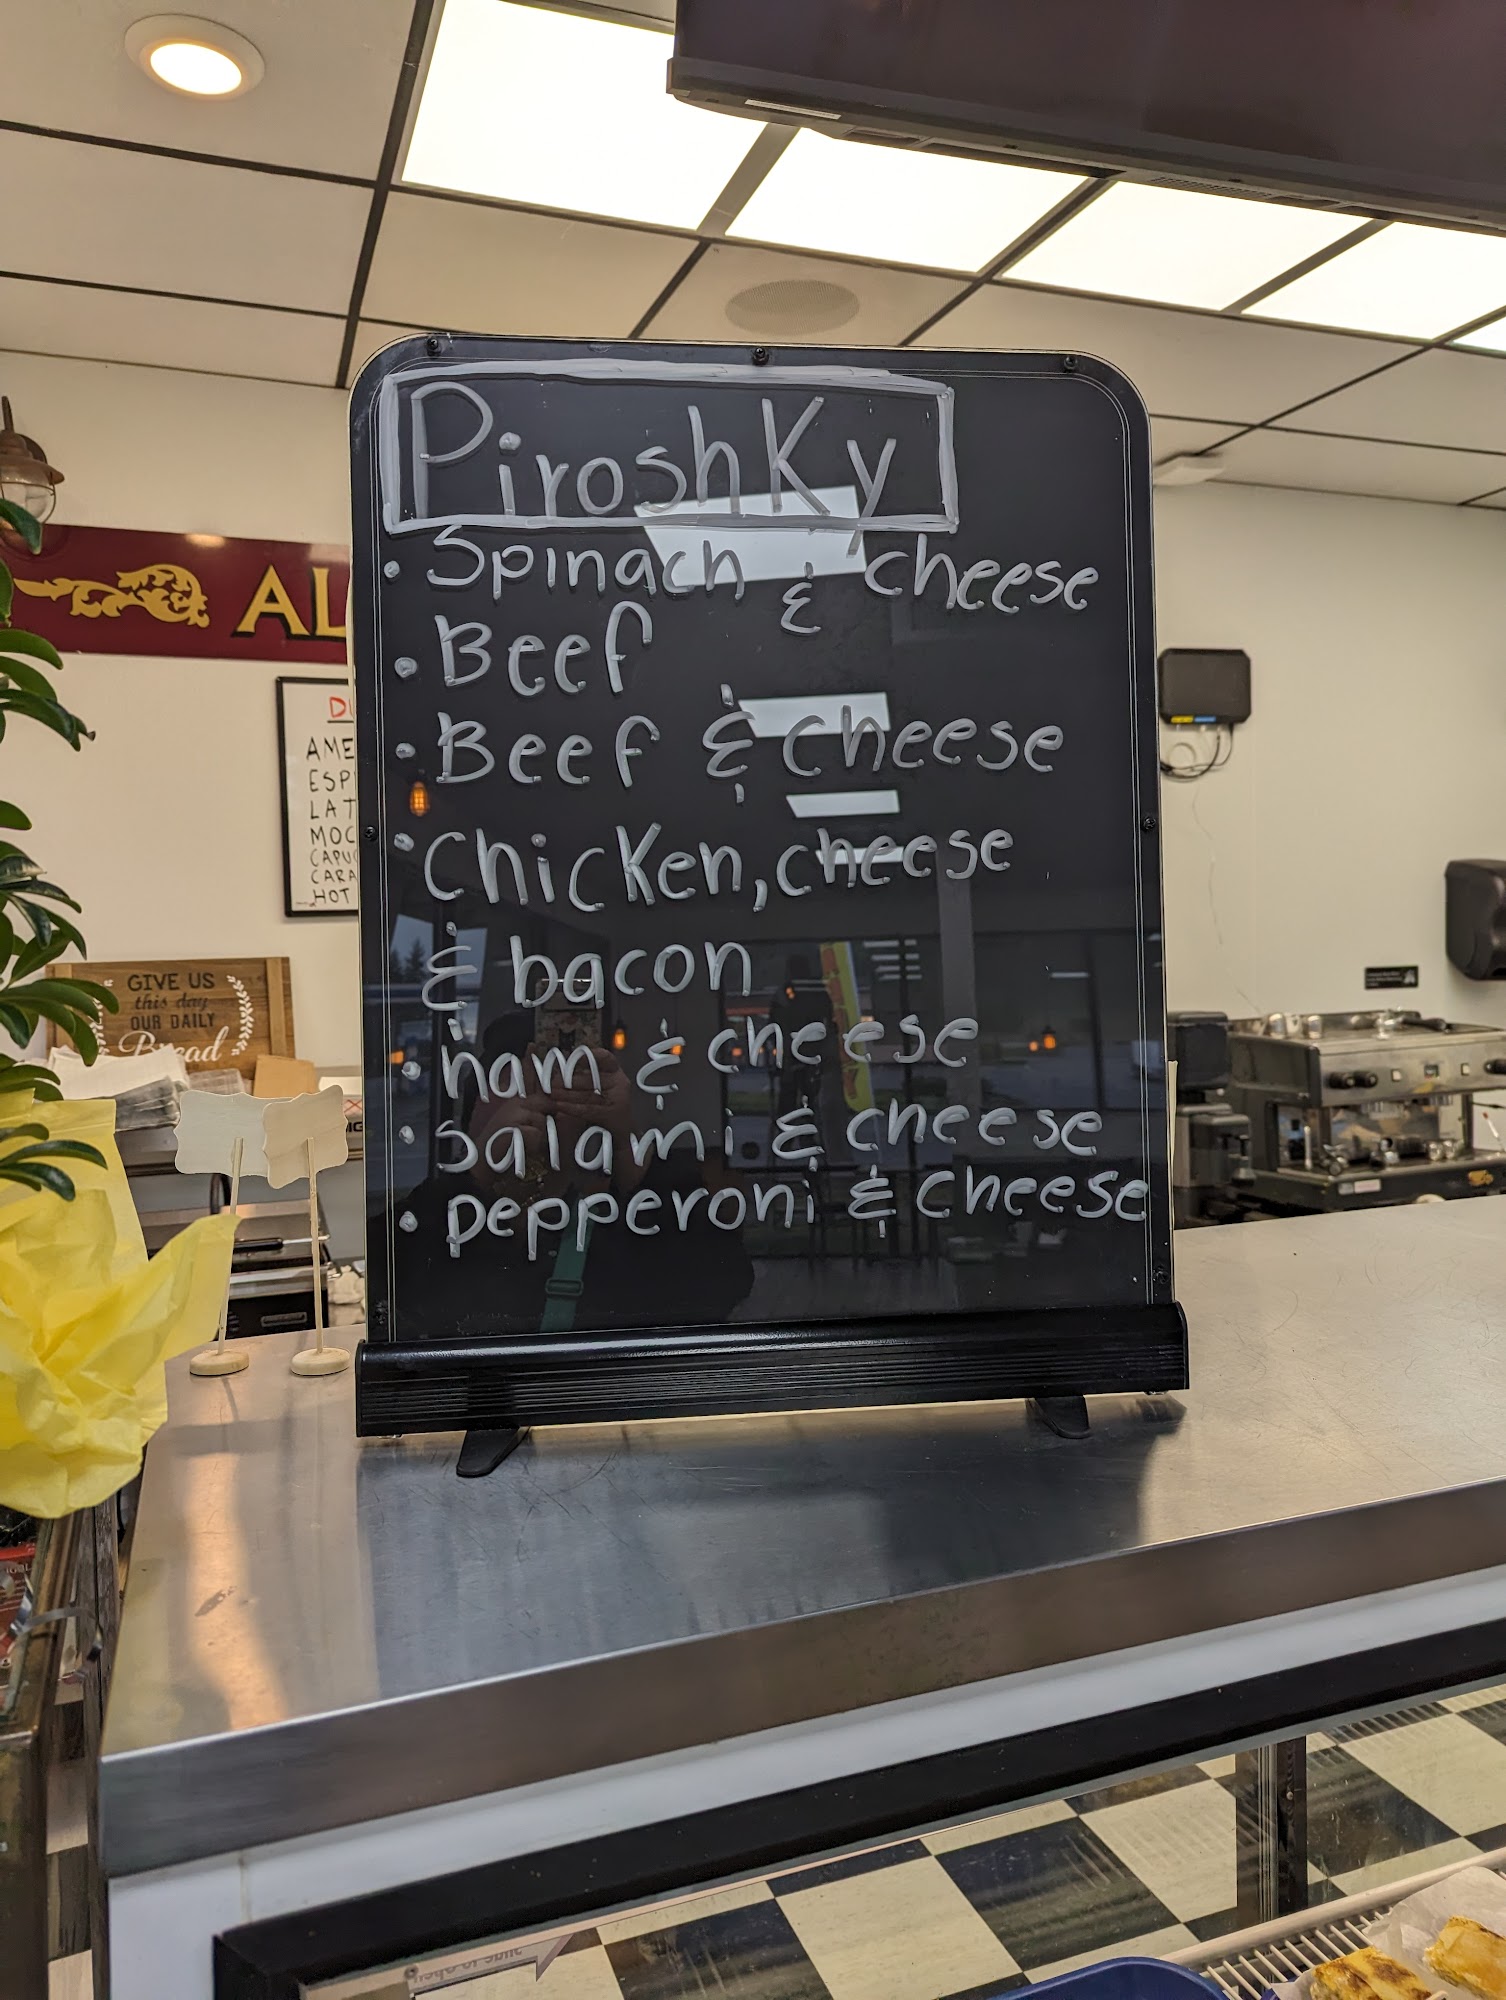 Piroshky
• Spinach & cheese
• Beef
• Beef & cheese
• Chicken, cheese
& bacon
• ham & cheese
• salami & cheese
• pepperoni & cheese
AL
DU
AME
ESP
LAT
MOC
CAPUC
CARA
HOT
GIVE US
this day
OUR DAILY
Bread